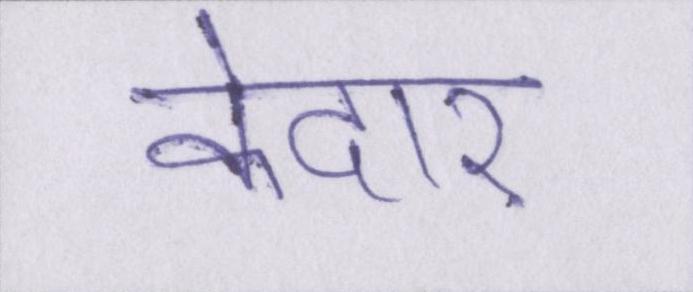 केदार